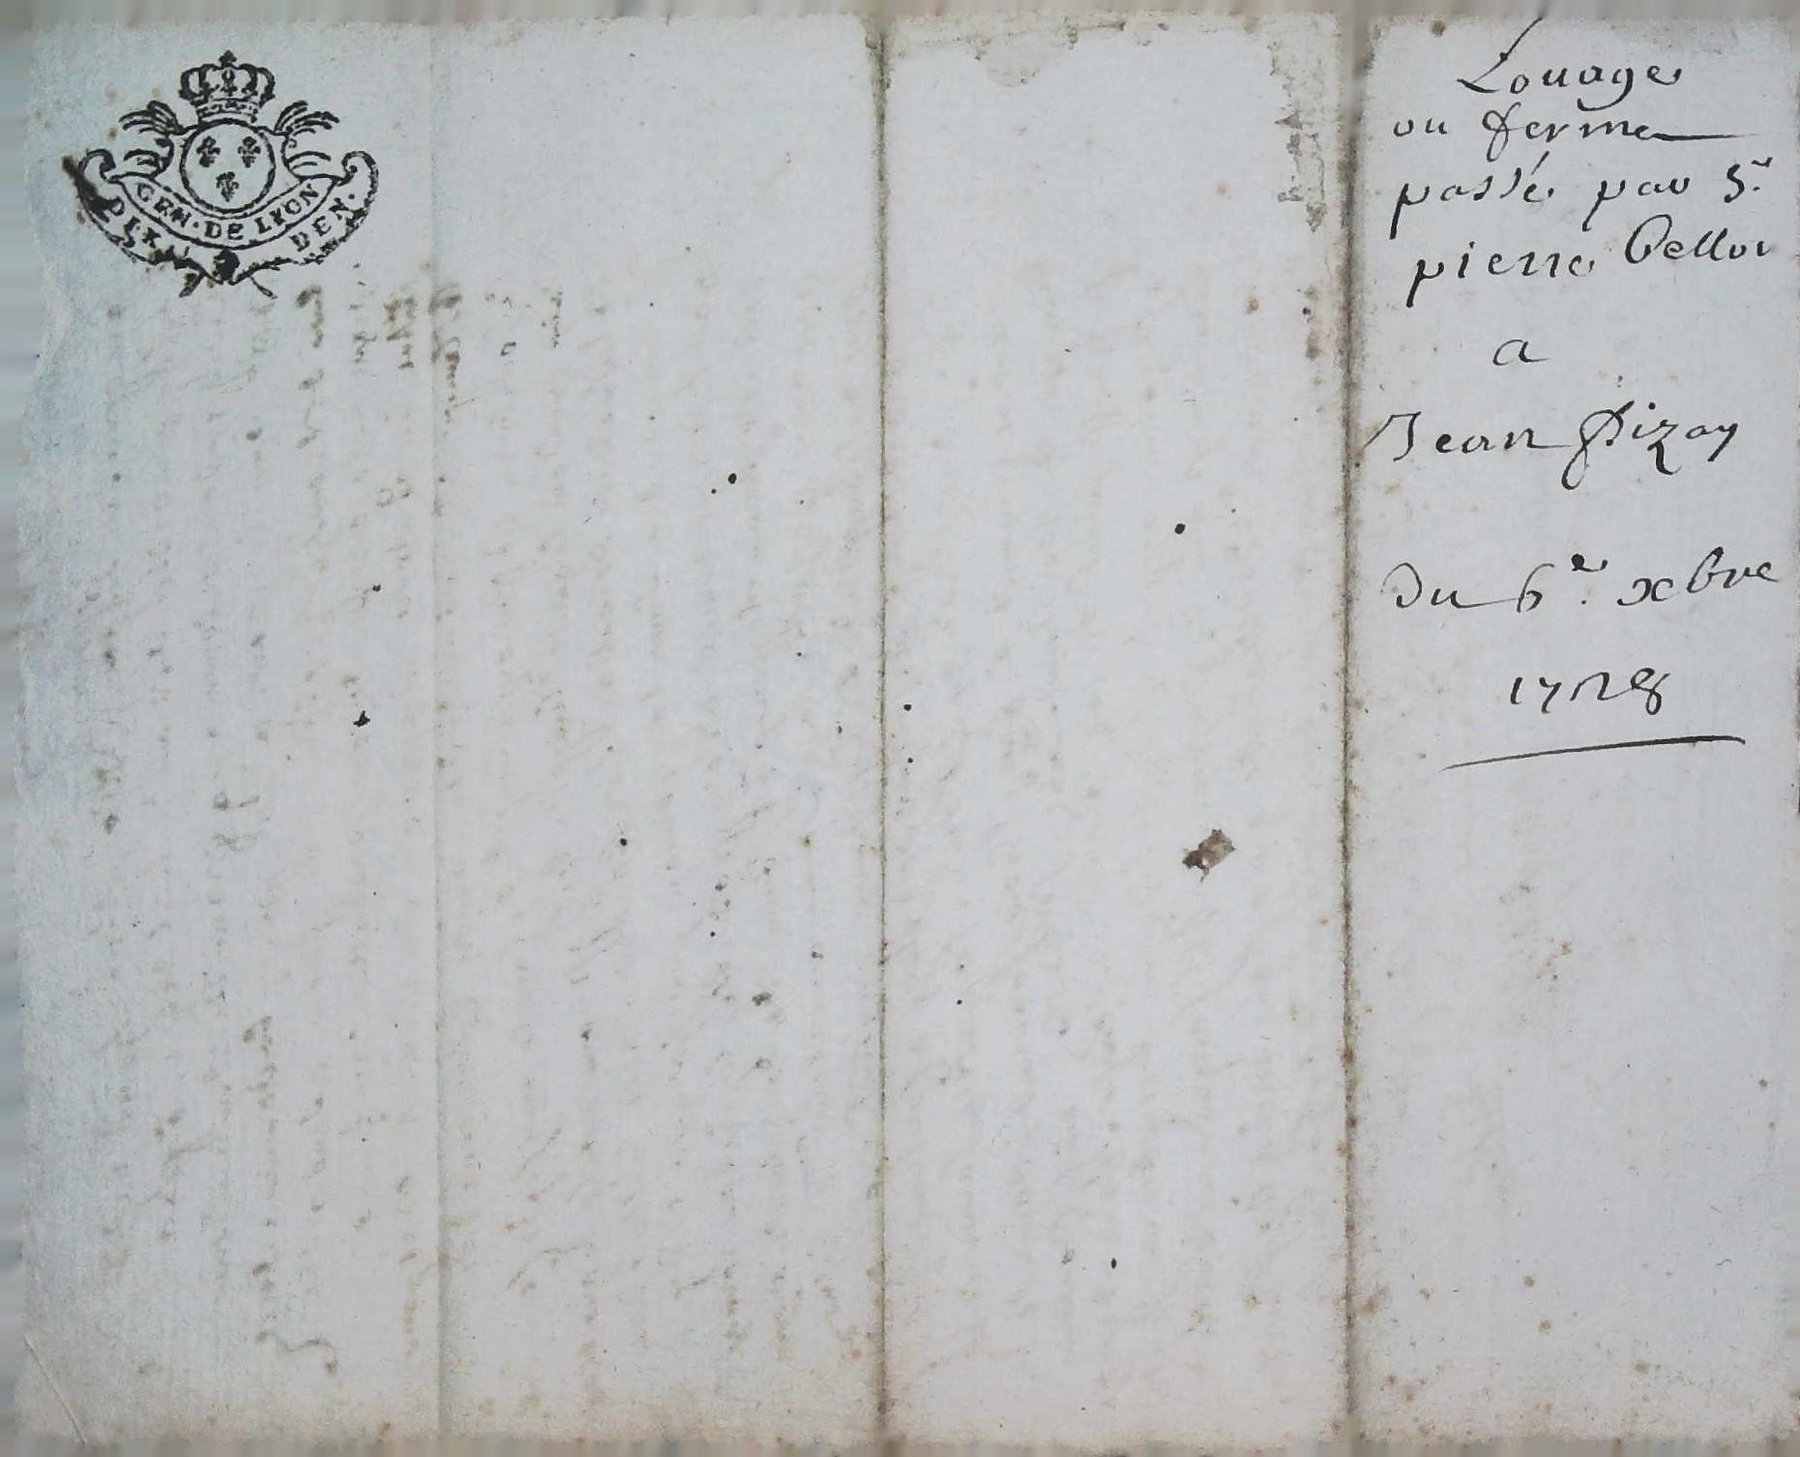 GEN. DE LYON
DEN.
Louage
ou ferme
passé par Sr.
pierre
a
Jean Pizay
Du 6e. xbre
1728